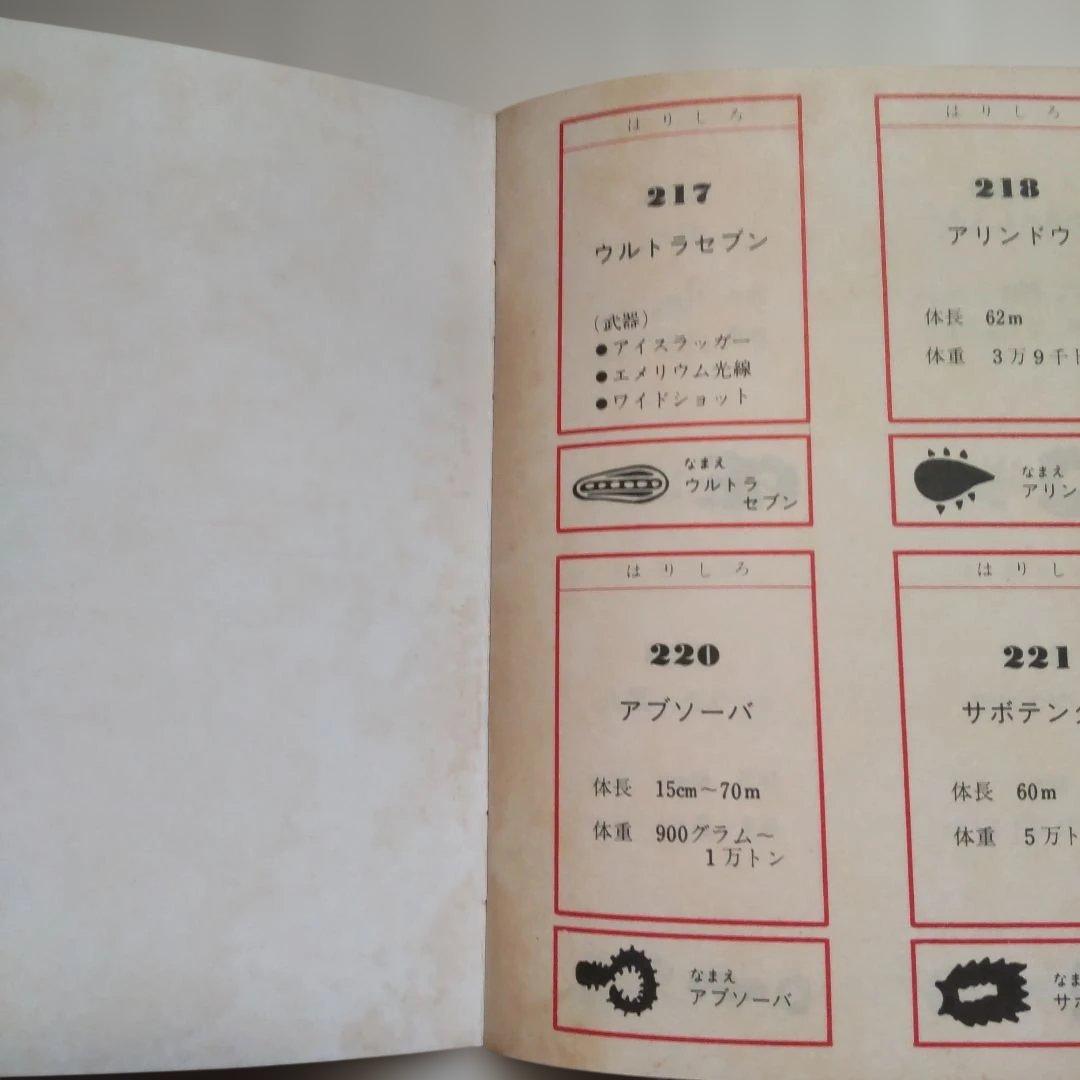 はりしろ
217
ウルトラセブン
(武器)
●アイスラッガー
●エメリウム光線
●ワイドショット
なまえ
ウルトラ
セブン
はりしろ
218
アリンドウ
体長 62m
体重 3万9千
なまえ
アリン
はりしろ
220
アブソーバ
体長 15cm～70m
体重 900グラム～
1万トン
なまえ
アブソーバ
はりし
221
サボテン
体長 60m
体重 5万ト
なま
サボ